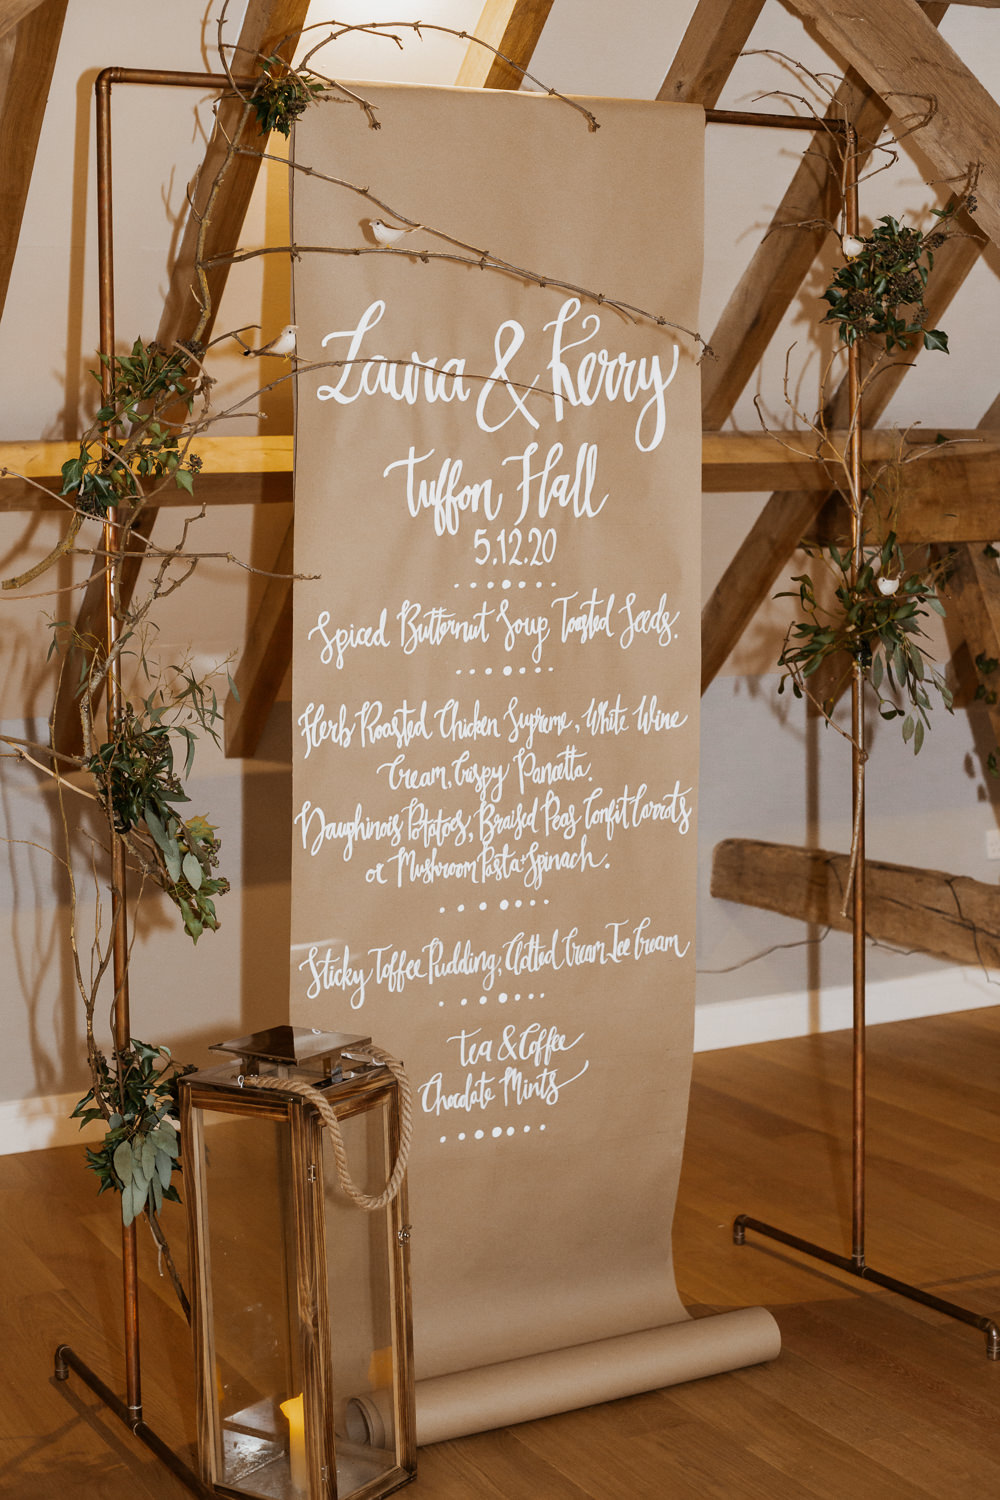 Laura & Kerry
Tuffon Hall
5.12.20
Spiced Butternut Soup Toasted Seeds.
Herb Roasted Chicken Supreme, White Wine
Cream, Crispy Pancetta.
Dauphinois Potatoes, Braised Peas Confit Carrots
or Mushroom Pasta + Spinach.
Sticky Toffee Pudding, Clotted Cream Ice Cream
Tea & Coffee
Chocolate Mints